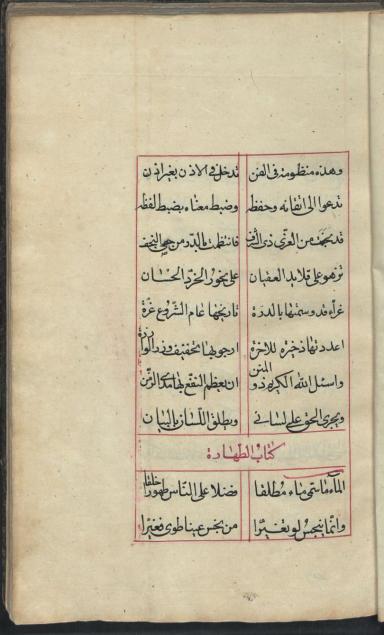 وهذه منظومة في الفن تدخل في الاذن بغير اذن
تدعوا الى اتقانه وحفظه وضبط معناه بضبط لفظه
من الغري ذي الشرف فانتظمت كالدر من النجف
تزهو على قلايد العقيان على نحور الخرد الحسان
غراء قد وسمتها بالدرة تاريخها عام الشروع غرة
اعددتها ذخيرة للاخرة ارجو بها
واسئل الله الكريم ذو المنن ان يعظم النفع بها مدى الزمن
ويجري الحق على لساني ويطلق اللسان بالبيان
كتاب الطهارة
الماء ما سمي ماء مطلقا فضلا على الناس طهورا خلقا
وانما ينجس لو تغيرا من نجس عينا طوى مغيرا